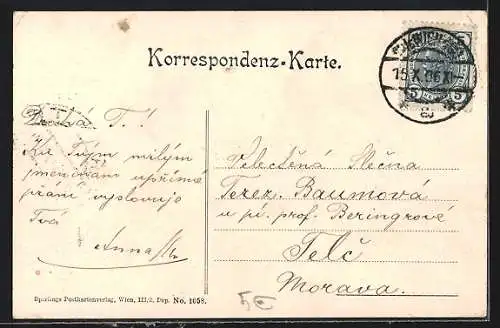 Korrespondenz-Karte.
15 X 06 XI-
5 5
Drahá T.!
Ku Tvým milým
jmeninám upřímné
přání vyslovuje
Tvá
Anna
Velectěná Slečna
Terez. Baumová
u pí. prof. Beringrové
Telč
Morava.
Sperlings Postkartenverlag, Wien, III/2, Dep. No. 1058.
5€